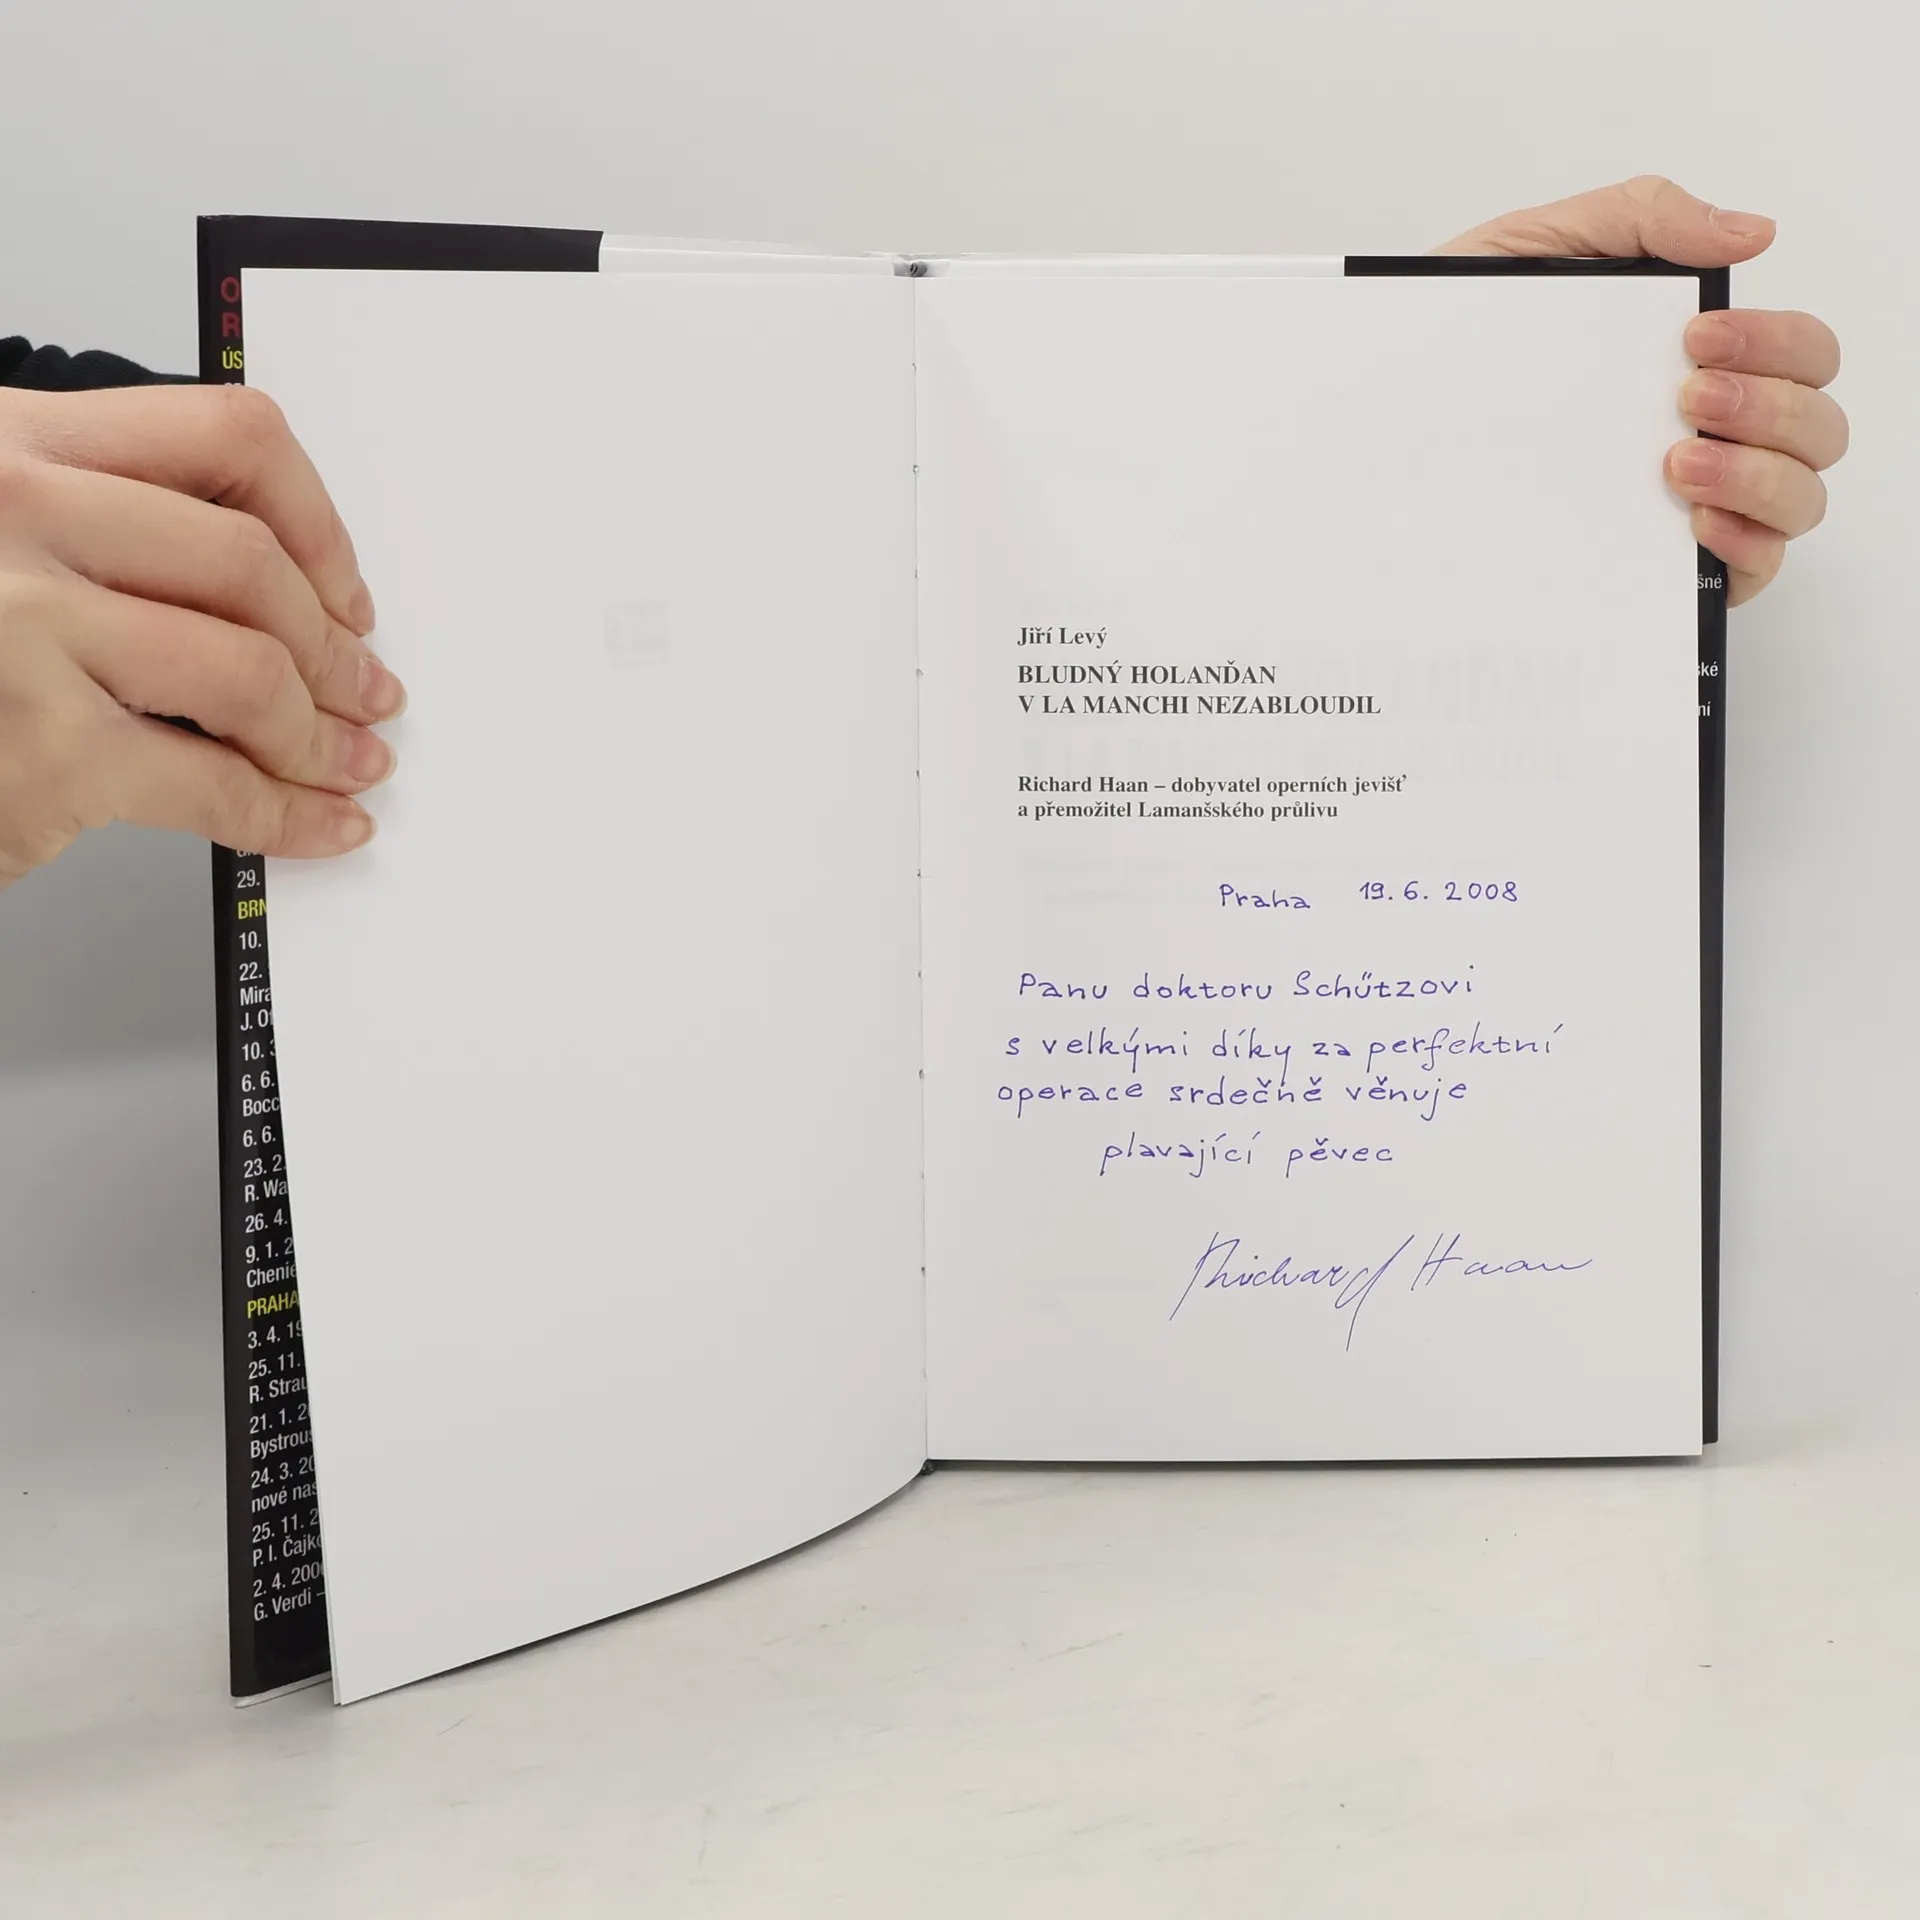 O
R
ÚS
29.
BRN
10.
22.
Mira
J. Ot
10. 3
6. 6.
Bocc
6. 6.
23. 2.
R. Wa
26. 4.
9. 1. 2
Chenie
PRAHA
3. 4. 19
25. 11.
R. Strau
21. 1. 2
Bystrous
24. 3. 20
nové nas
25. 11. 2
P. I. Čajko
2. 4. 2000
G. Verdi –
Jiří Levý
BLUDNÝ HOLANĎAN
V LA MANCHI NEZABLOUDIL
Richard Haan – dobyvatel operních jevišť
a přemožitel Lamanšského průlivu
Praha 19. 6. 2008
Panu doktoru Schützovi
s velkými díky za perfektní
operace srdečně věnuje
plavající pěvec
Richard Haan
šné
ké
ní